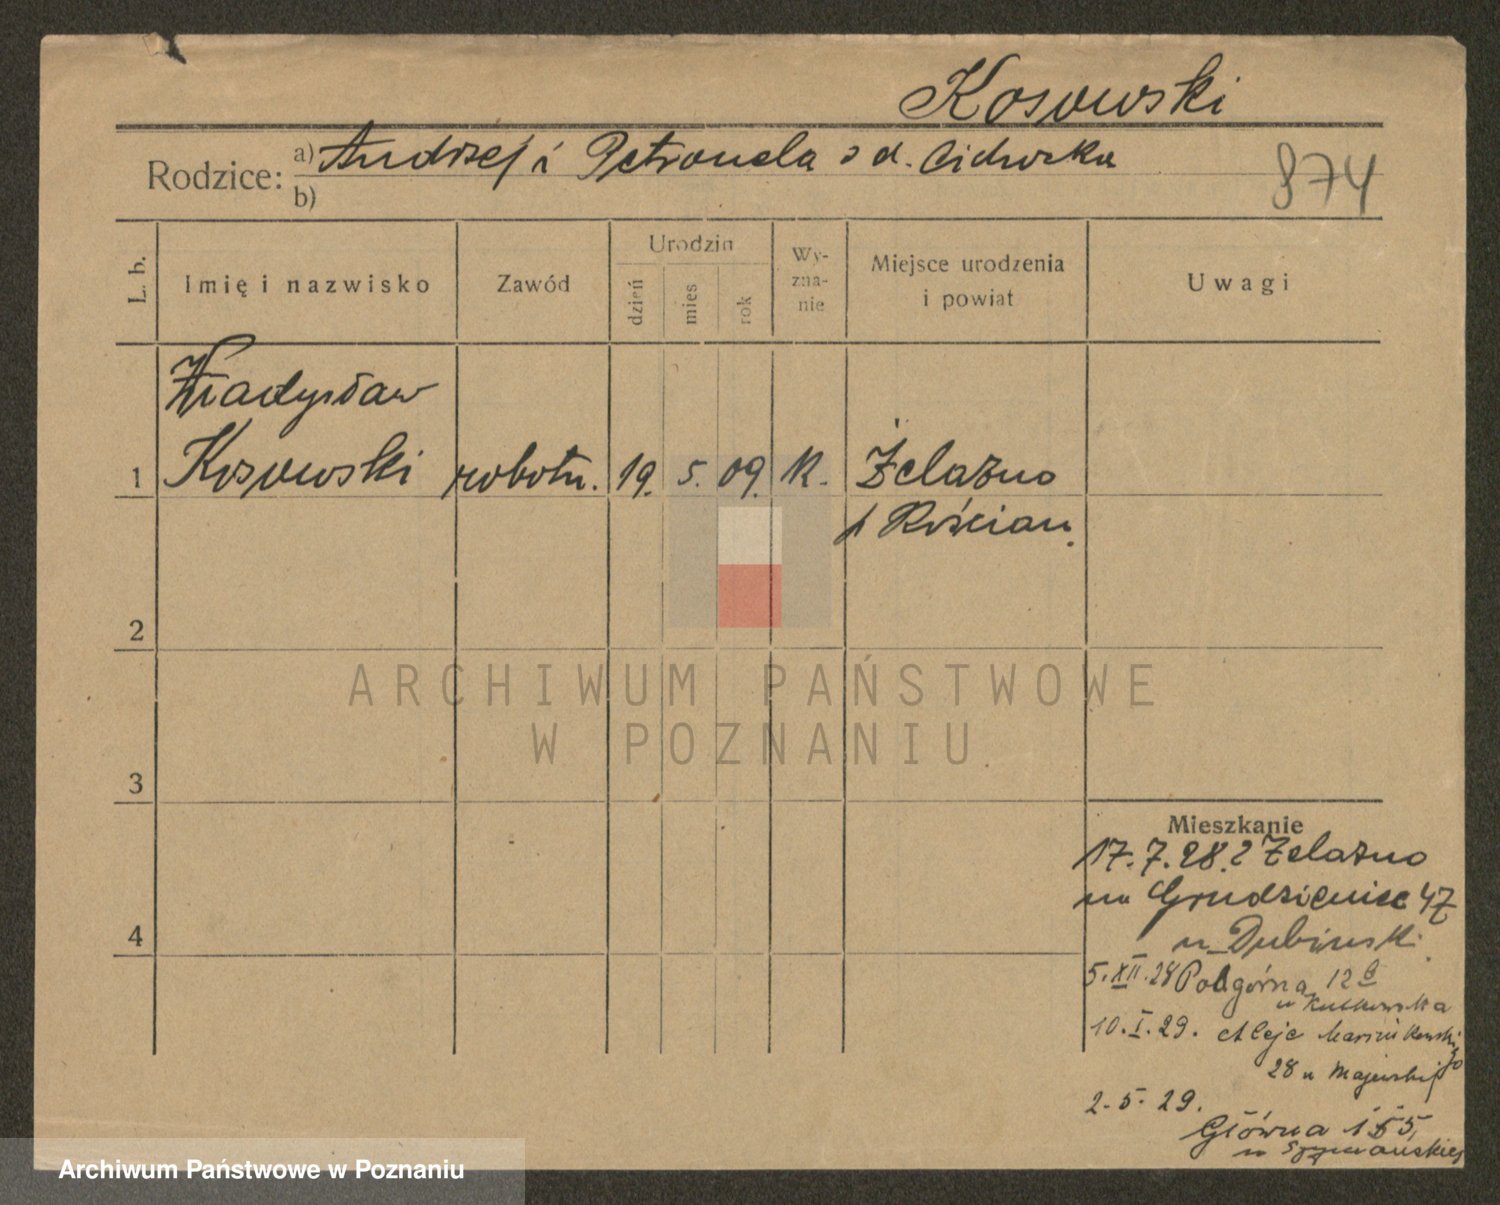 Kosowski
Rodzice: a) Andrzej i Petronela z d. Cichocka
b)
874
L. b.
Imię i nazwisko
Zawód
Urodzin
dzień
mies
rok
Wy-
zna-
nie
Miejsce urodzenia
i powiat
Uwagi
Władysław
1 Kosowski robotn. 19. 5. 09. K. Żelazno
p Kościan.
2
3
4
Mieszkanie
17.7.28. z Żelazno
na Grudzieniec 47
u Dubinski
5.XII.28 Podgórna 12
u
10.I.29. Aleje Marcinkowskiego
28 u Majewskiej
2.5.29.
Główna 155,
u Szymańskiej
ARCHIWUM PAŃSTWOWE
W POZNANIU
Archiwum Państwowe w Poznaniu